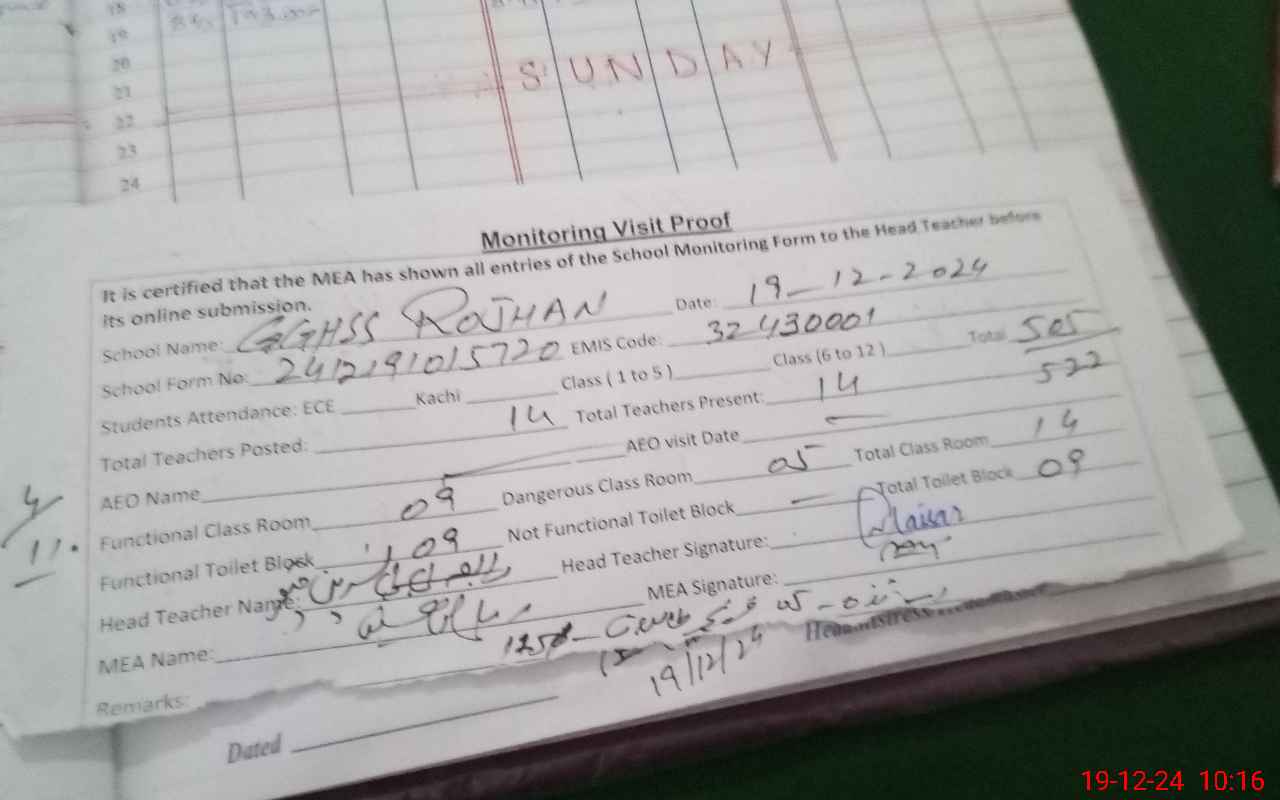 18
19
20
21
22
23
24
SUNDAY
Monitoring Visit Proof
It is certified that the MEA has shown all entries of the School Monitoring Form to the Head Teacher before
its online submission.
School Name: GGHSS ROJHAN Date: 19-12-2024
School Form No: 2412191015720 EMIS Code: 32430001
Students Attendance: ECE Kachi Class (1 to 5) Class (6 to 12) Total 505
522
Total Teachers Posted: 14 Total Teachers Present: 14
AEO Name AEO visit Date
Functional Class Room 09 Dangerous Class Room 05 Total Class Room 14
Functional Toilet Block 09 Not Functional Toilet Block Total Toilet Block 09
Head Teacher Name: Head Teacher Signature:
MEA Name: MEA Signature:
Remarks:
19/12/24
Dated
19-12-24 10:16